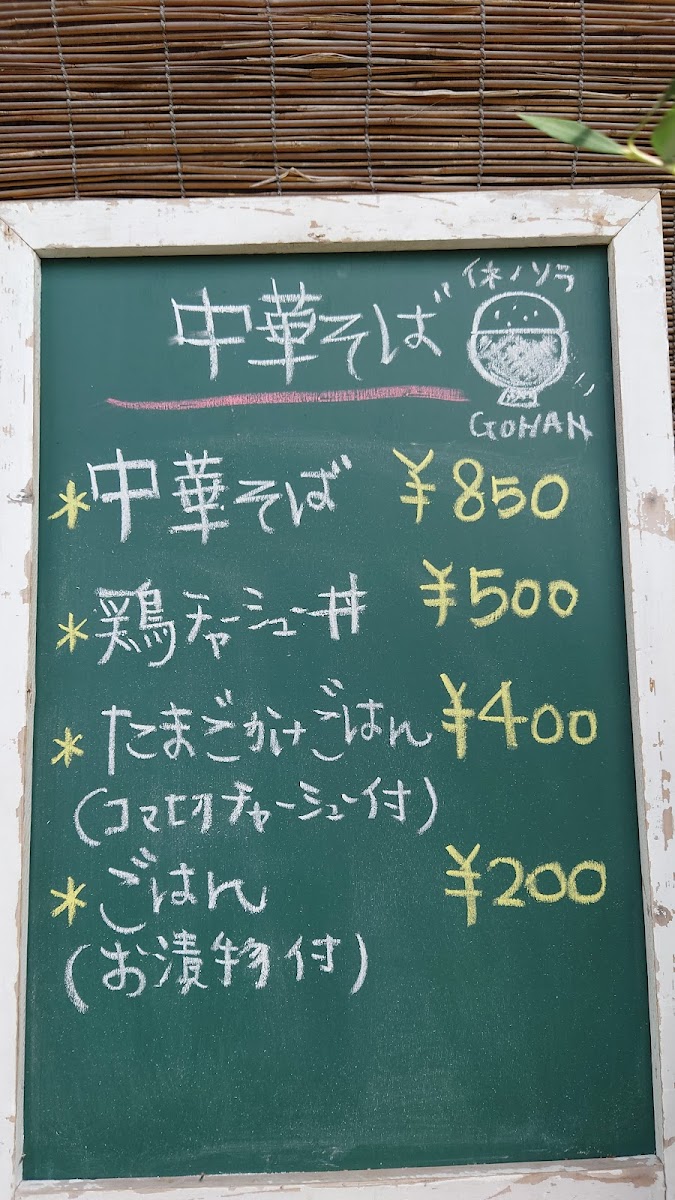 中華そば
休ノソラ
GOHAN
*中華そば ¥850
*鶏チャーシュー丼 ¥500
*たまごかけごはん ¥400
(コマ切チャーシュー付)
*ごはん ¥200
(お漬物付)